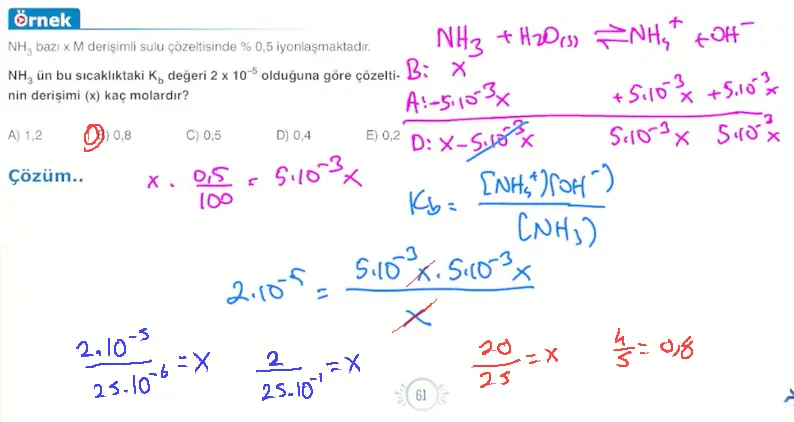 Örnek
NH₃ bazı x M derişimli sulu çözeltisinde % 0,5 iyonlaşmaktadır.
NH₃ ün bu sıcaklıktaki K_b değeri 2 x 10⁻⁵ olduğuna göre çözelti-
nin derişimi (x) kaç molardır?
A) 1,2 B) 0,8 C) 0,5 D) 0,4 E) 0,2
NH₃ + H₂O(s) ⇌ NH₄⁺ + OH⁻
B: x
A: -5.10⁻³x +5.10⁻³x +5.10⁻³x
D: x-5.10⁻³x 5.10⁻³x 5.10⁻³x
Çözüm..
x . 0,5/100 = 5.10⁻³x
K_b = [NH₄⁺][OH⁻]/[NH₃]
2.10⁻⁵ = 5.10⁻³x . 5.10⁻³x / x
2.10⁻⁵/25.10⁻⁶ = x 2/25.10⁻¹ = x 20/25 = x 4/5 = 0,8
61